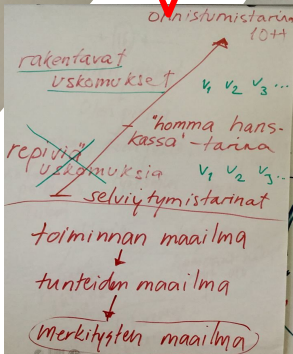 onnistumistarina
10++
rakentavat
uskomukset
V1 V2 V3...
"homma hans-
kassa"-tarina
repiviä
uskomuksia
V1 V2 V3...
selviytymistarinat
toiminnan maailma
tunteiden maailma
merkitysten maailma